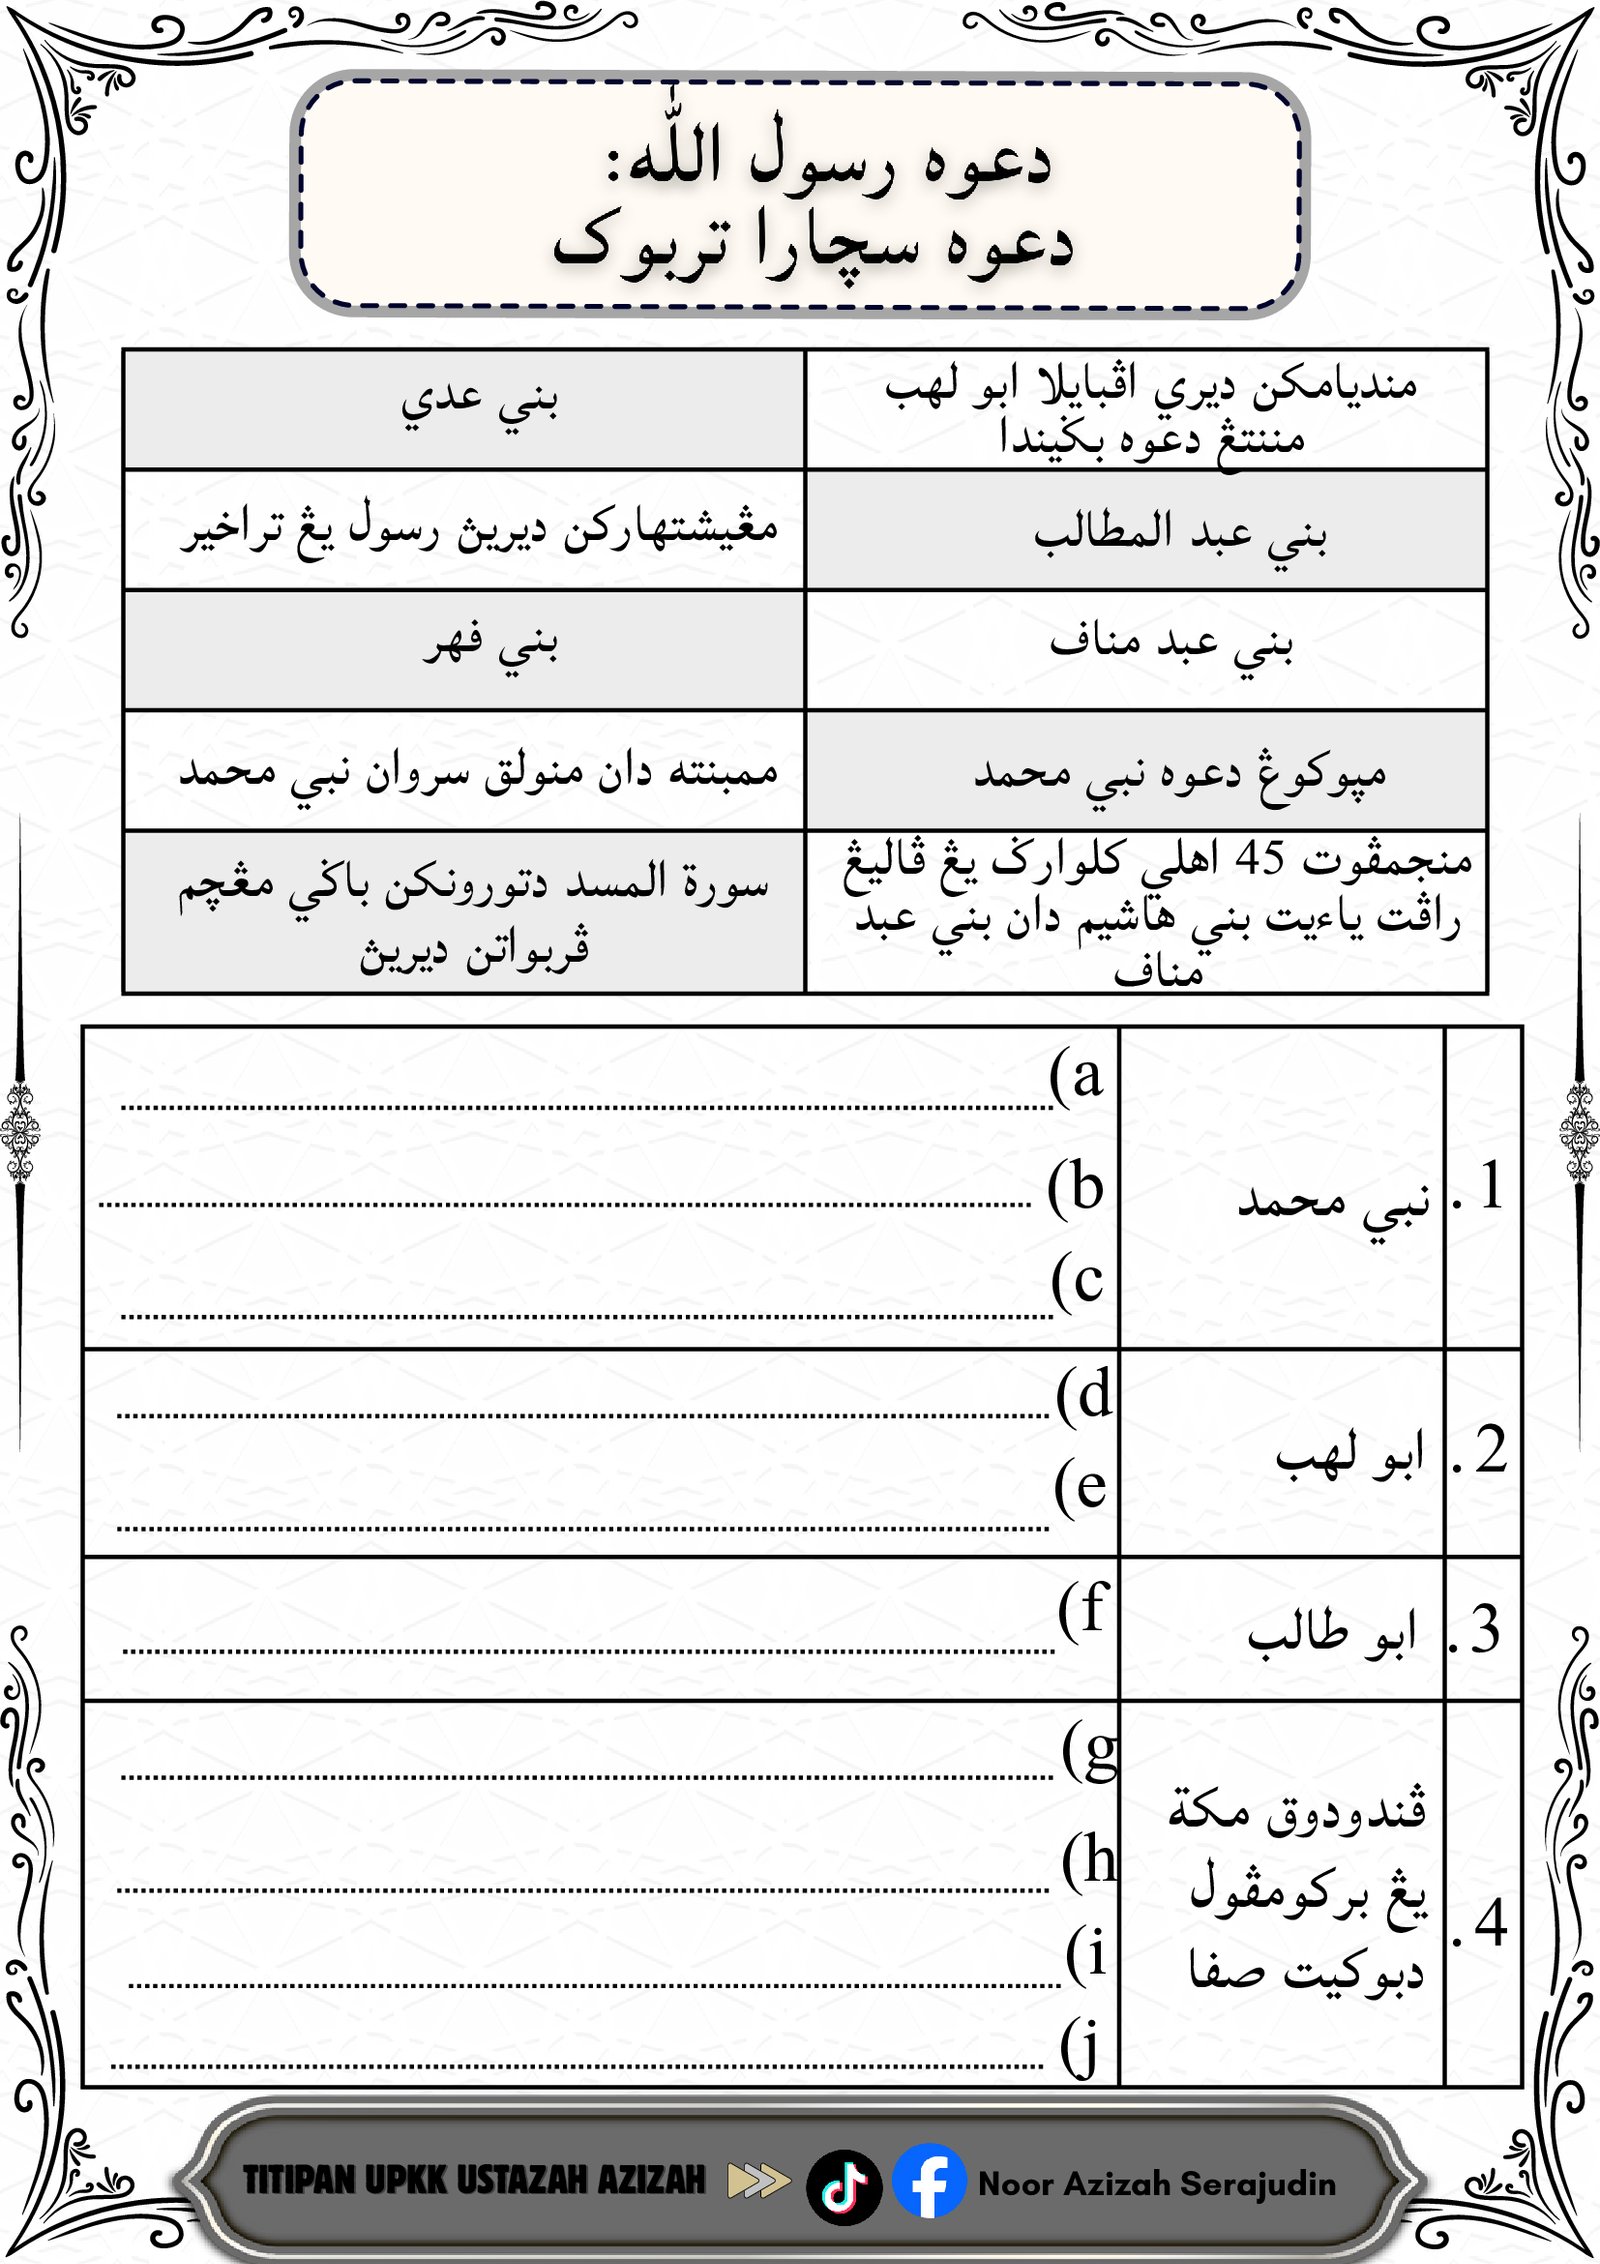 دعوه رسول الله:
دعوه سچارا تربوک
منديامکن ديري اڤبايلا ابو لهب
مننتڠ دعوه بݢيندا
بني عدي
بني عبد المطالب
مڠيشتهارکن ديرين رسول يڠ تراخير
بني عبد مناف
بني فهر
مڽوکوڠ دعوه نبي محمد
ممبنته دان منولق سروان نبي محمد
منجمڤوت 45 اهلي کلوارݢ يڠ ڤاليڠ
راڤت ياءيت بني هاشيم دان بني عبد
مناف
سورة المسد دتورونکن باݢي مڠچم
ڤربواتن ديريڽ
1. نبي محمد
a)
b)
c)
2. ابو لهب
d)
e)
3. ابو طالب
f)
4. ڤندودوق مکة
يڠ برکومڤول
دبوکيت صفا
g)
h)
i)
j)
TITIPAN UPKK USTAZAH AZIZAH
Noor Azizah Serajudin